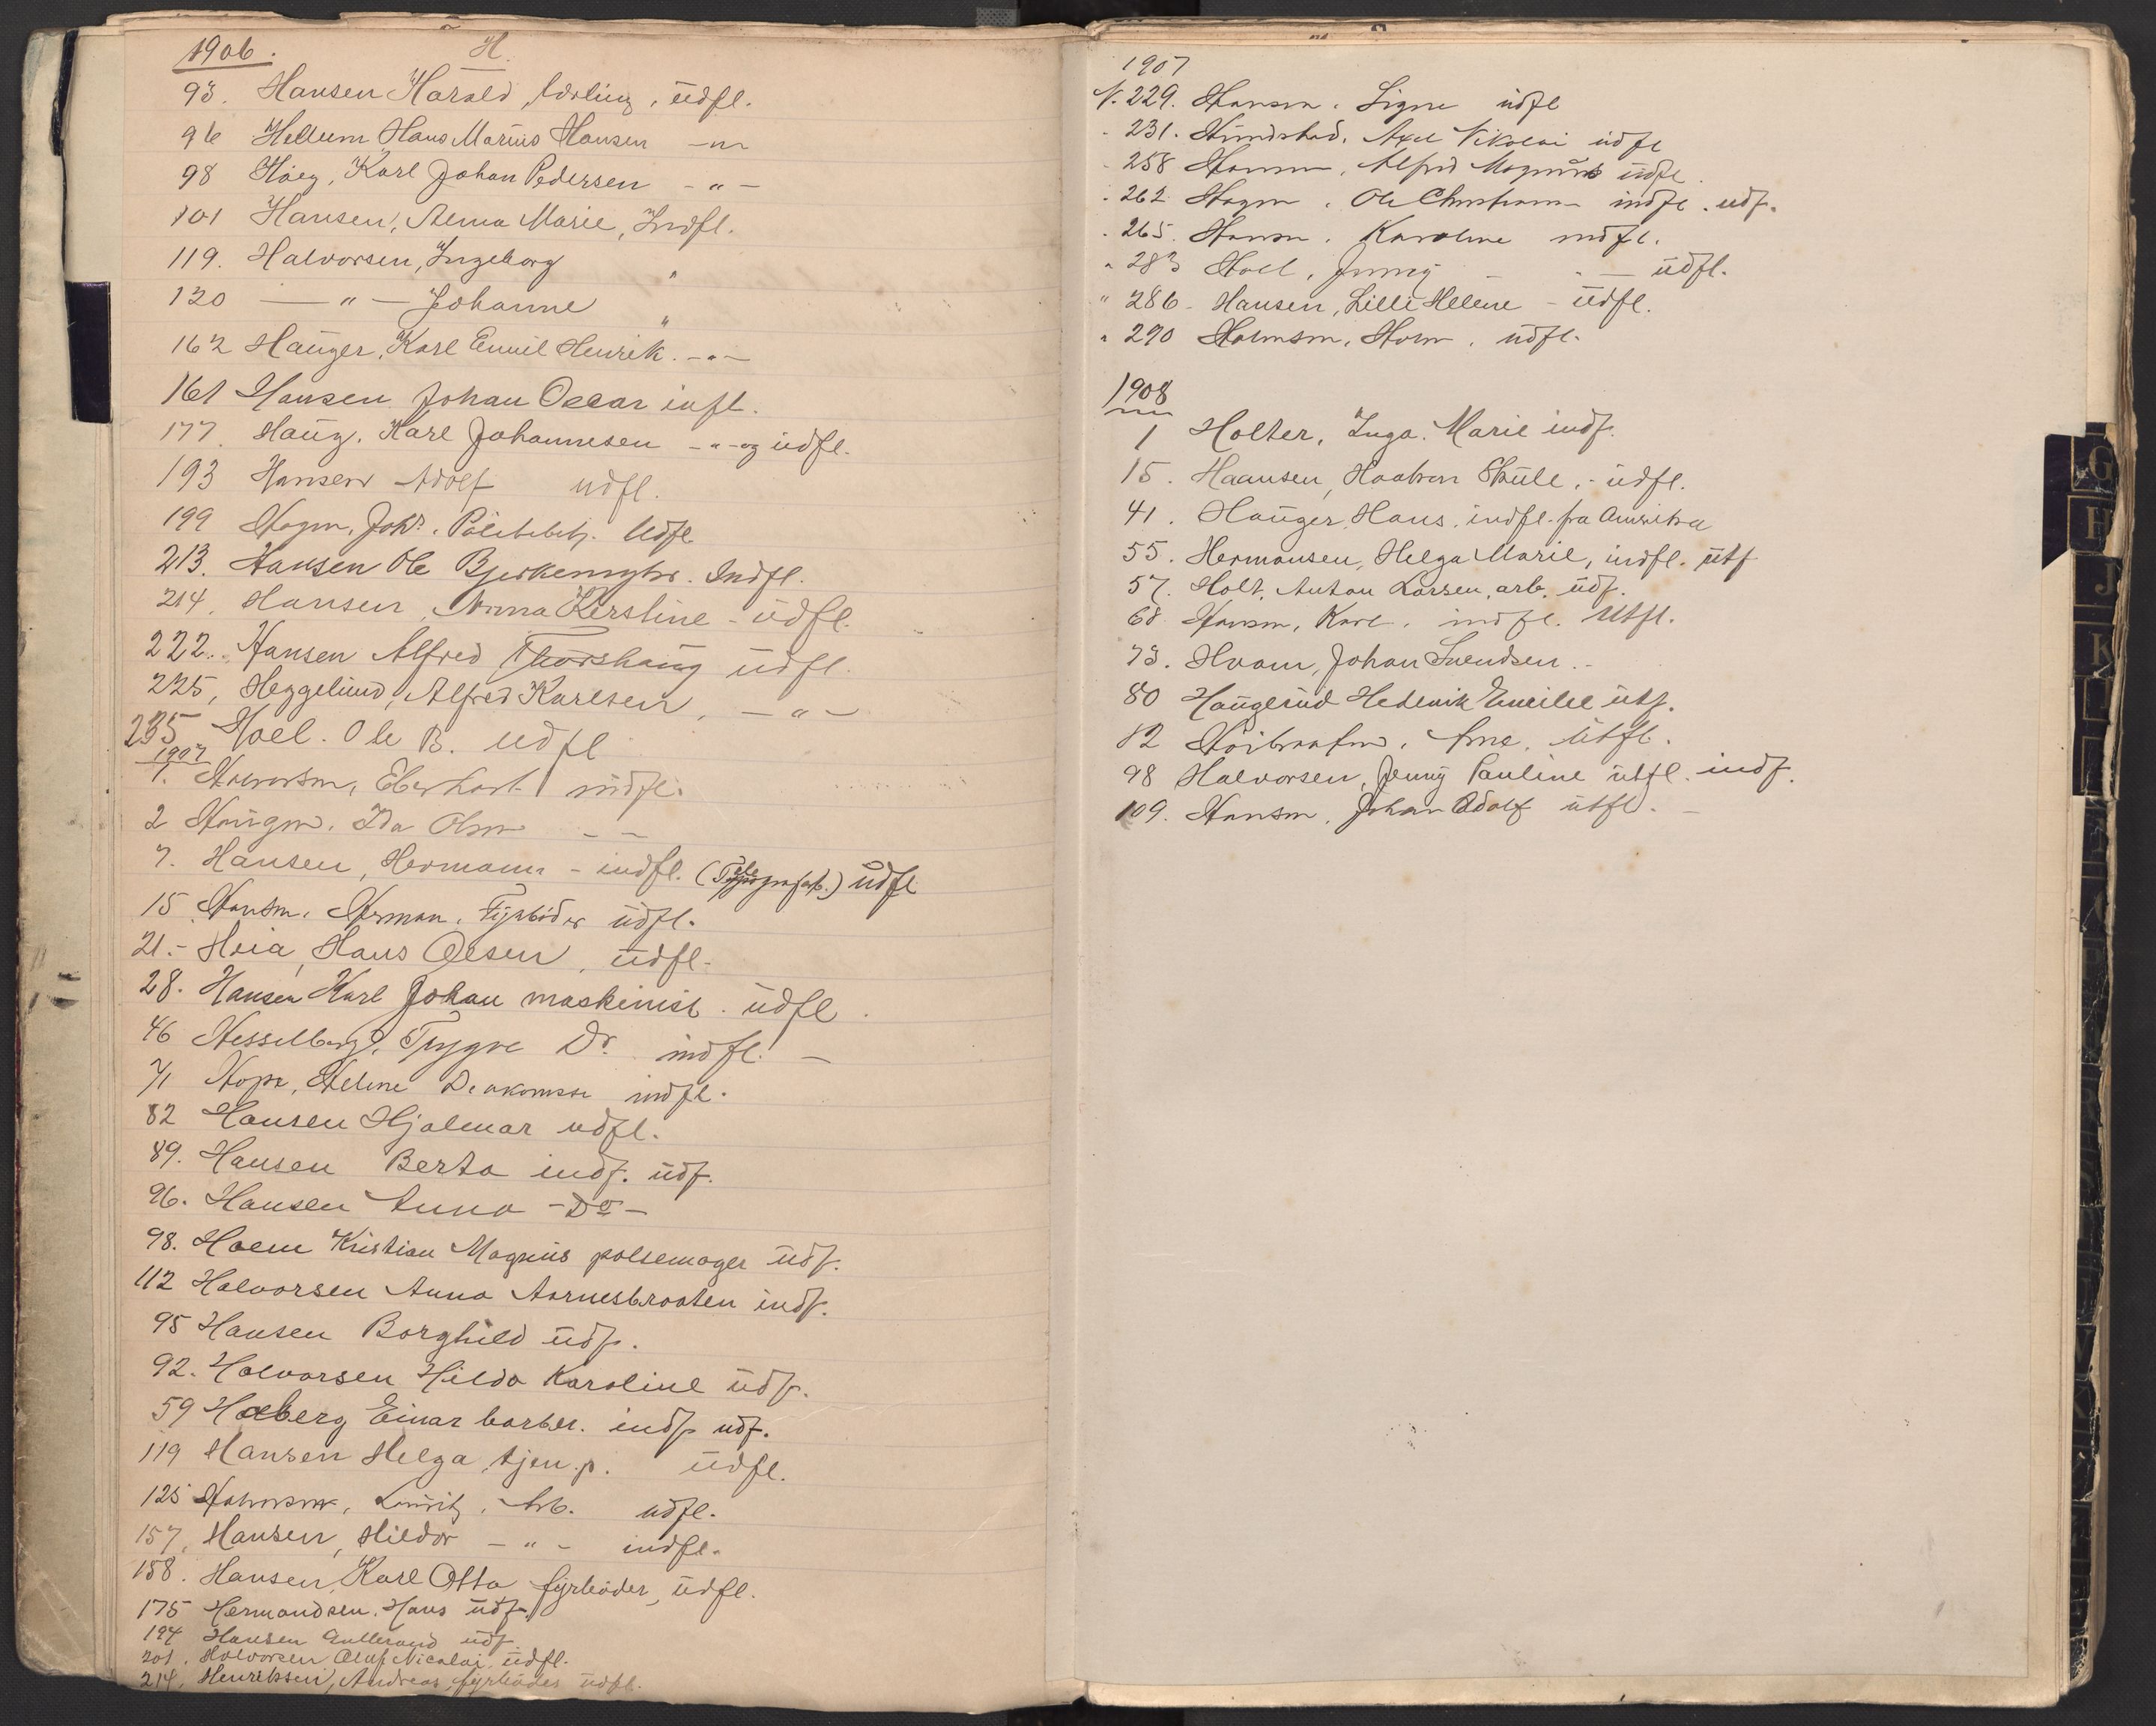 1906.
H.
93. Hansen Harald, Erling, udfl.
96 Hellum Hans Marius Hansen -"-
98 Haug, Karl Johan Pedersen -"-
101 Hansen, Alma Marie, Indfl.
119. Halvorsen, Ingeborg "
120 —"— Johanne "
162 Hauger, Karl Emil Henrik. -"-
161 Hansen Johan Oscar infl.
177. Haug, Karl Johannesen -"- og udfl.
193 Hansen Adolf udfl.
199 Hagen, Johs. Politibetj. Udfl
213. Hansen Ole Bjerkemyhr. Indfl.
214. Hansen, Anna Kirstine - udfl.
222. Hansen Alfred Thorshaug udfl.
225, Heggelund, Alfred Karlsen, -"-
235 Hoel. Ole B. udfl
1907
1. Halvorsen, Eberhart indfl.
2 Haugen, Ida Olsen - -
7. Hansen, Hermann - indfl. udfl
15 Hansen, Herman, Fyrbøder udfl.
21.- Heia, Hans Olsen, udfl.
28. Hansen Karl Johan maskinist. udfl.
46 Hesselberg, Trygve Dr. indfl. -
71 Hope, Helene Diakonisse indfl.
82 Hansen Hjalmar udfl.
89. Hansen Berta indf. udf.
96. Hansen Anna -Do-
98. Holm Kristian Magnus pølsemager udf.
112 Halvorsen Anna Aarnesbraaten indf.
95 Hansen Borghild udf.
92. Halvorsen Hilda Karoline udf.
59 Holberg Einar barber. indf udf.
119 Hansen Helga, tjen.p. udfl.
125 Halvorsen, Lauritz, Arb. udfl.
157, Hansen, Hildor -"- indfl.
158. Hansen, Karl Otto fyrbøder, udfl.
175 Hermandsen, Hans udf.
194 Hansen Gulbrand udf.
201. Halvorsen Oluf Nicolai udfl.
214, Henriksen, Andreas, fyrbøder udfl.
1907
N. 229. Hansen, Signe udfl
- 231. Hundstad, Axel Nikolai udfl
- 258 Hansen, Alfred Magnus udfl.
- 262 Hagen, Ole Christian indfl. udf.
- 265. Hansen, Karoline indfl.
" 283 Hoel, Jenny - - — udfl.
" 286 - Hansen, Lilli Helene - udfl.
" 290 Halvorsen, Halvor, udfl.
1908
1 Holter, Inga Marie indf.
15. Haansen, Haakon Skule, - udfl.
41. Hauger, Hans, indfl. fra Amerika
55. Hermansen, Helga Marie, indfl. utf
57. Holt, Anton Larsen, arb. udf.
68 Hansen, Karl, indfl. Utfl.
73. Hvam, Johan Svendsen. -
80 Haugerud Hedevik Emilie utf.
82 Arne, Utfl.
98 Halvorsen, Jenny Pauline utfl. indf.
109. Hansen, Johan Adolf utfl. -
G
H
J
K